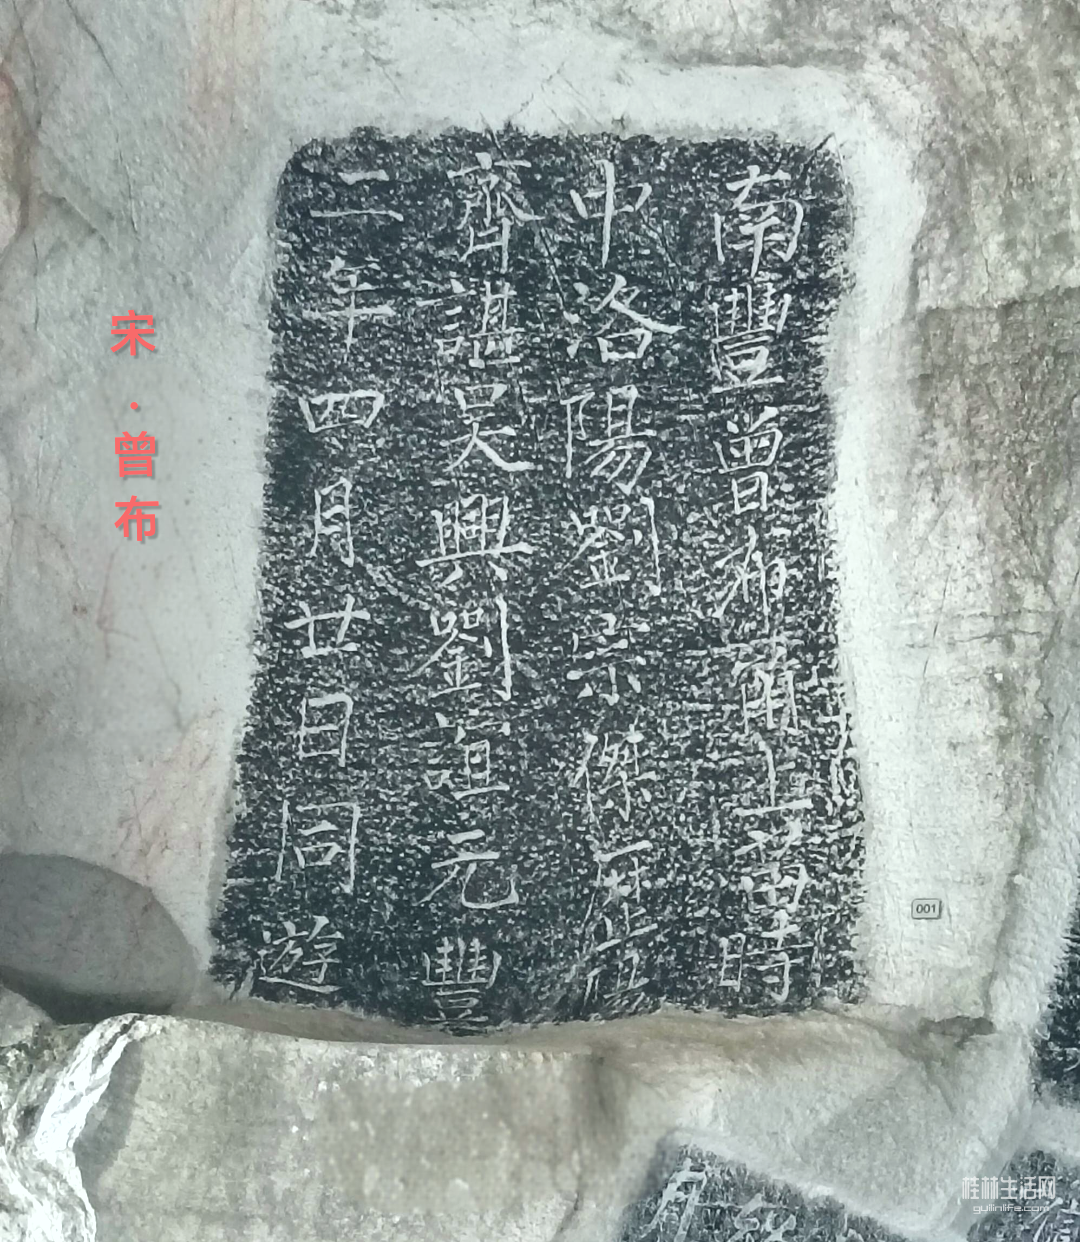 南豐曾布上苗時
中洛陽劉宗傑陽
齊諶吴興劉誼元豐
二年四月廿日同遊
宋·曾布
001
月
桂林生活网
guilinlife.com